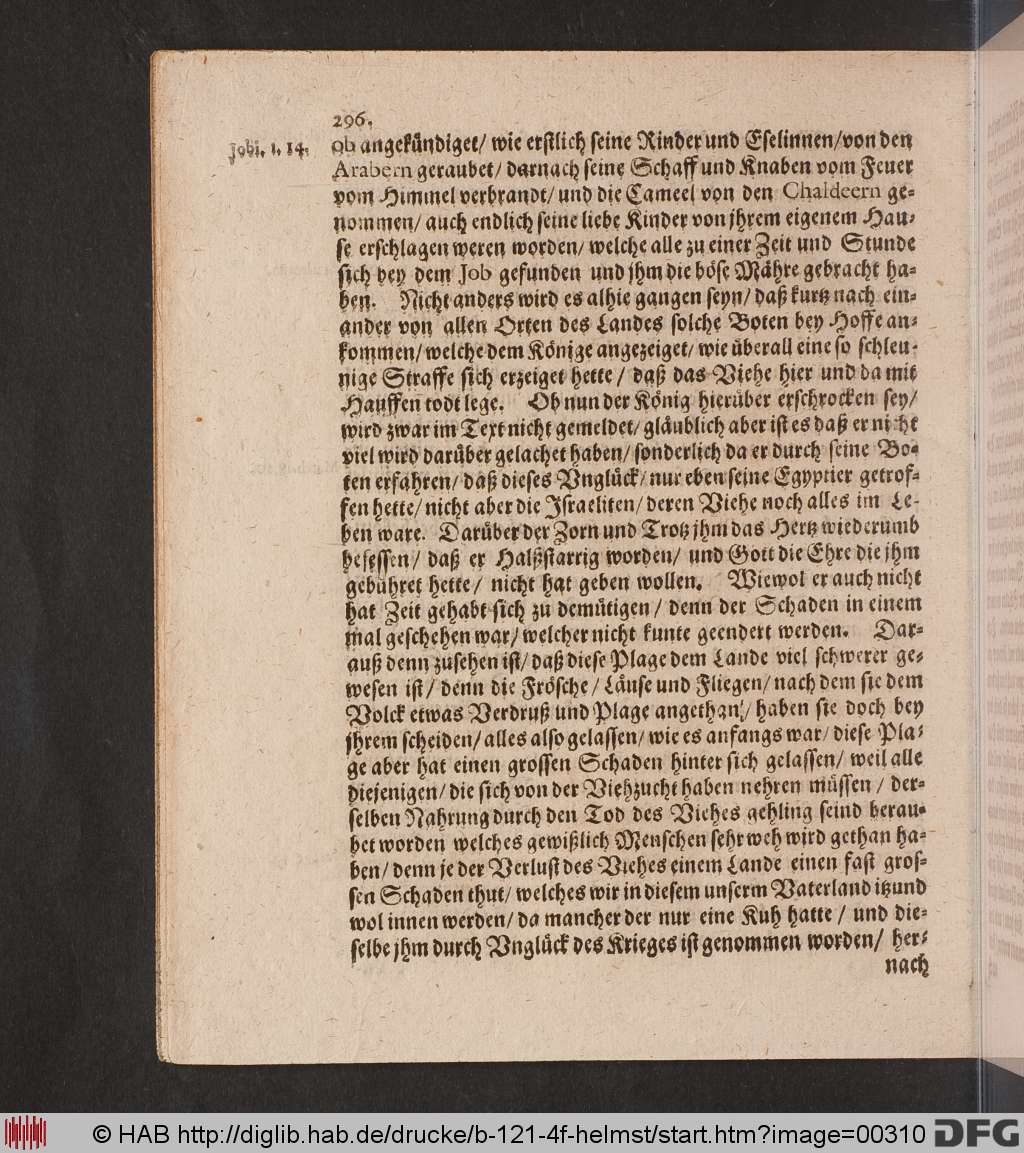 296.
Jobi. 1. 14.
ob angekündiget/ wie erstlich seine Rinder und Eselinnen/von den
Arabern geraubet/ darnach seine Schaff und Knaben vom Feuer
vom Himmel verbrandt/ und die Cameel von den Chaldeern ge-
nommen/ auch endlich seine liebe Kinder von jhrem eigenem Hau-
se erschlagen weren worden/ welche alle zu einer Zeit und Stunde
sich bey dem Job gefunden und jhm die böse Mähre gebracht ha-
ben. Nicht anders wird es alhie gangen seyn/ daß kurtz nach ein-
ander von allen Orten des Landes solche Boten bey Hoffe an-
kommen/ welche dem Könige angezeiget/ wie überall eine so schleu-
nige Straffe sich erzeiget hette/ daß das Viehe hier und da mit
Hauffen todt lege. Ob nun der König hierüber erschrocken sey/
wird zwar im Text nicht gemeldet/ gläublich aber ist es daß er nicht
viel wird darüber gelachet haben/ sonderlich da er durch seine Bo-
ten erfahren/ daß dieses Vnglück/ nur eben seine Egyptier getrof-
fen hette/ nicht aber die Israeliten/ deren Viehe noch alles im Le-
ben ware. Darüber der Zorn und Trotz jhm das Hertz wiederumb
besessen/ daß er Halßstarrig worden/ und Gott die Ehre die jhm
gebühret hette/ nicht hat geben wollen. Wiewol er auch nicht
hat Zeit gehabt sich zu demütigen/ denn der Schaden in einem
mal geschehen war/ welcher nicht kunte geendert werden. Dar-
auß denn zusehen ist/ daß diese Plage dem Lande viel schwerer ge-
wesen ist/ denn die Frösche/ Läuse und Fliegen/ nach dem sie dem
Volck etwas Verdruß und Plage angethan/ haben sie doch bey
jhrem scheiden/ alles also gelassen/ wie es anfangs war/ diese Pla-
ge aber hat einen grossen Schaden hinter sich gelassen/ weil alle
diejenigen/ die sich von der Viehzucht haben nehren müssen/ der-
selben Nahrung durch den Tod des Viehes gehling seind berau-
bet worden welches gewißlich Menschen sehr weh wird gethan ha-
ben/ denn je der Verlust des Viehes einem Lande einen fast gros-
sen Schaden thut/ welches wir in diesem unserm Vaterland itzund
wol innen werden/ da mancher der nur eine Kuh hatte/ und die-
selbe jhm durch Vnglück des Krieges ist genommen worden/ her-
nach
© HAB http://diglib.hab.de/drucke/b-121-4f-helmst/start.htm?image=00310 DFG